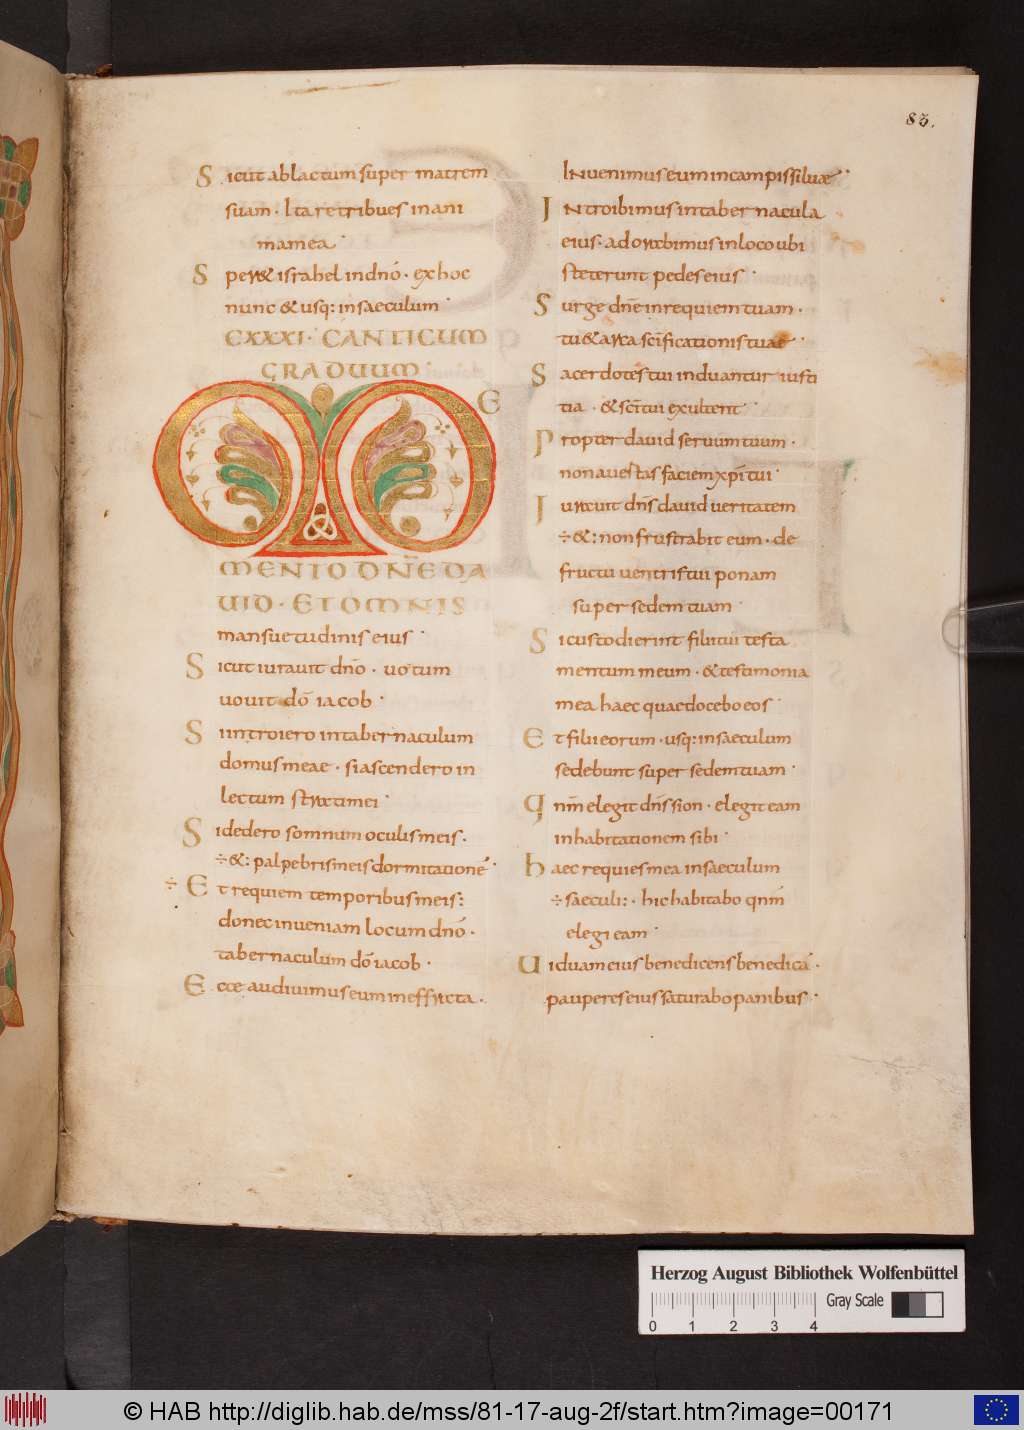 85.
Sicut ablactum super matrem
suam · Ita retribues inani
mamea ·
Sper& israhel indn̄o · exhoc
nunc & usq: insaeculum ·
CXXXI · CANTICUM
GRADUUM ·
ME
MENTO DN̄E DA
UID · ET OMNIS
mansuetudinis eius ·
Sicut iurauit dn̄o · uotum
uouit dō iacob ·
Siintroiero intabernaculum
domus meae · siascendero in
lectum stratimei ·
Sidedero somnum oculismeis ·
÷&: palpebrismeisdormitationē ·
÷ Et requiem temporibusmeis:
donec inueniam locum dn̄o ·
tabernaculum dō iacob ·
Ecce audiuimuseum ineffrata ·
Inuenimuseum incampissiluae ·
Introibimus intabernacula
eius · adorabimus inloco ubi
steterunt pedeseius ·
Surge dn̄e inrequiem tuam ·
tu & arca sc̄ificationis tuae ·
Sacerdotes tui induantur iusti
tia · & sc̄i tui exultent ·
Propter dauid seruum tuum ·
non auertas faciem xp̄i tui ·
Iurauit dn̄s dauid ueritatem
÷&: non frustrabit eum · de
fructu uentris tui ponam
super sedem tuam ·
Sicustodierint filii tui testa
mentum meum · & testimonia
mea haec quae docebo eos ·
Et filii eorum · usq: insaeculum
sedebunt super sedem tuam ·
Qnm̄ elegit dn̄s sion · elegit eam
inhabitationem sibi ·
Haec requies mea insaeculum
÷saeculi: · hic habitabo qnm̄
elegi eam ·
Uiduam eius benedicens benedicā ·
pauperes eius saturabo panibus ·
Herzog August Bibliothek Wolfenbüttel
Gray Scale
0 1 2 3 4
© HAB http://diglib.hab.de/mss/81-17-aug-2f/start.htm?image=00171